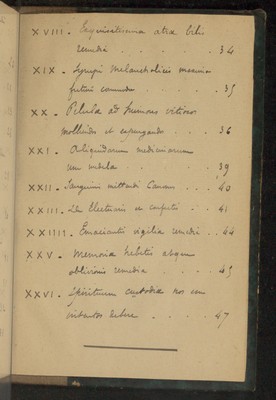 XVIII. Exquisitissima atræ bilis
remedia . . . . . . 34
XIX. Syrupi melancholicis maxime
futuri commodo . . . . 35
XX. Pilula ad humores vitiosos
molliendos et expurgandos . . . 36
XXI. Aliquidarum medicinarum
. . . . 39
XXII. Sanguinis mittendi Canones . . . 40
XXIII. De Electuariis et confectis . . 41
XXIIII. Emaciantis vigiliæ remedia . . 44
XXV. Memoriæ hebetis absque
oblivionis remedia . . . 45
XXVI. Spirituum custodia nos cum
habere . . . . . 47